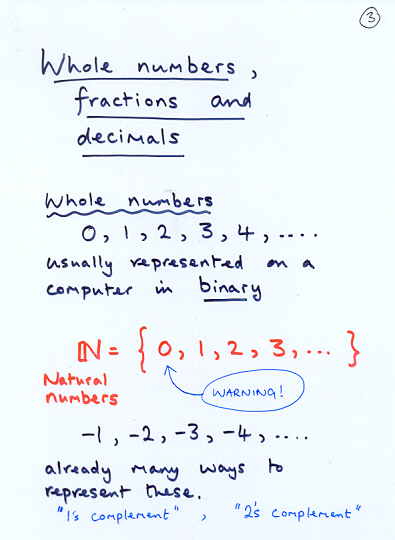 3
Whole numbers,
fractions and
decimals
Whole numbers
0, 1, 2, 3, 4, ....
usually represented on a
computer in binary
ℕ = { 0, 1, 2, 3, ... }
Natural
numbers
WARNING!
-1, -2, -3, -4, ....
already many ways to
represent these.
"1's complement", "2's complement"